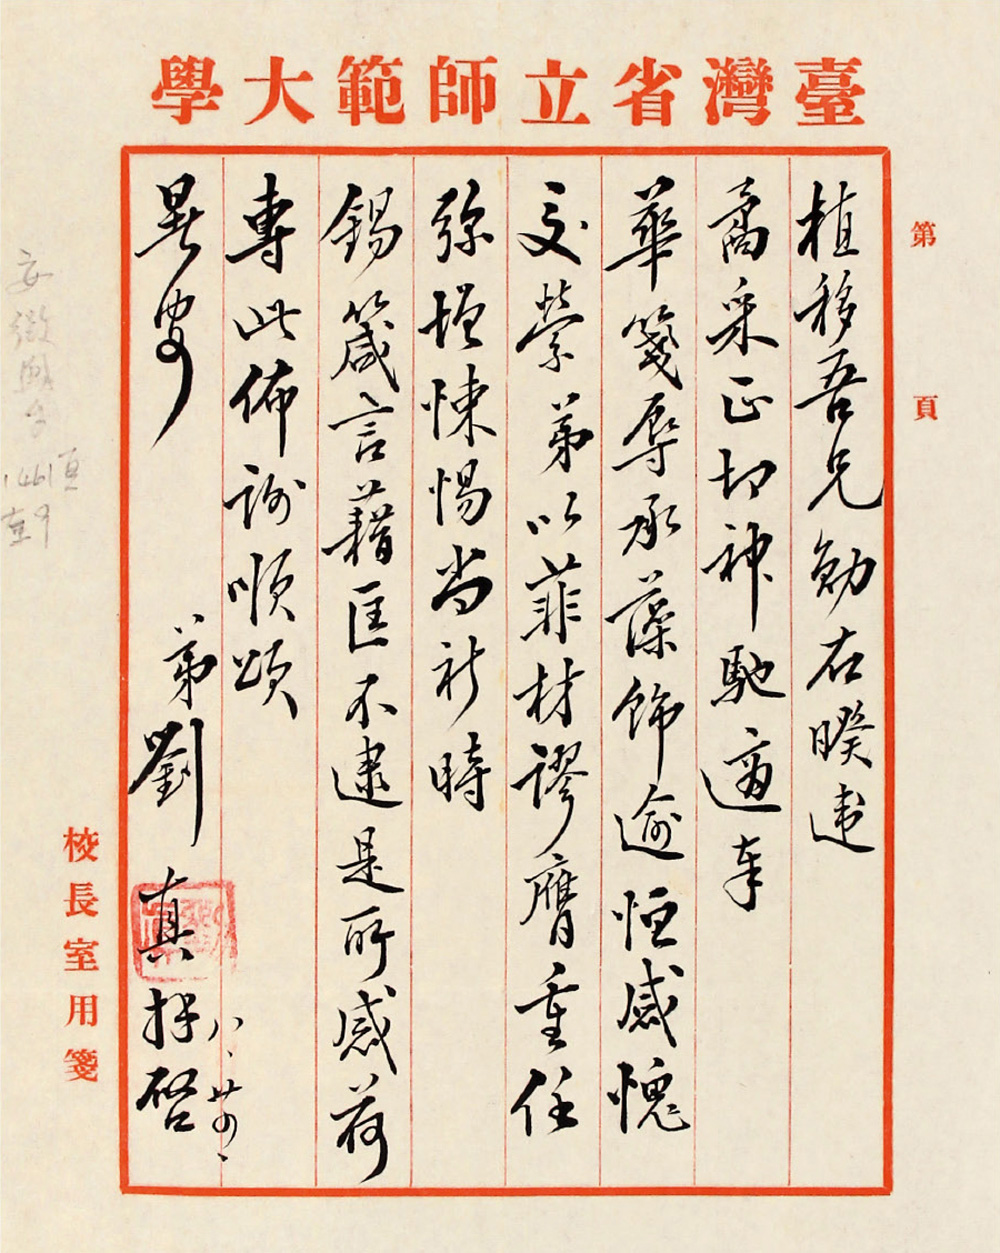 臺灣省立師範大學
第 頁
植移吾兄勛右暌违
矞采正切神馳適奉
華箋辱承藻飾逾恒感愧
交縈弟以菲材謬膺重任
弥增悚惕尚祈時
錫箴言藉匡不逮是所感荷
專此佈謝順頌
弟劉真拜啓
八、廿四、
校長室用箋